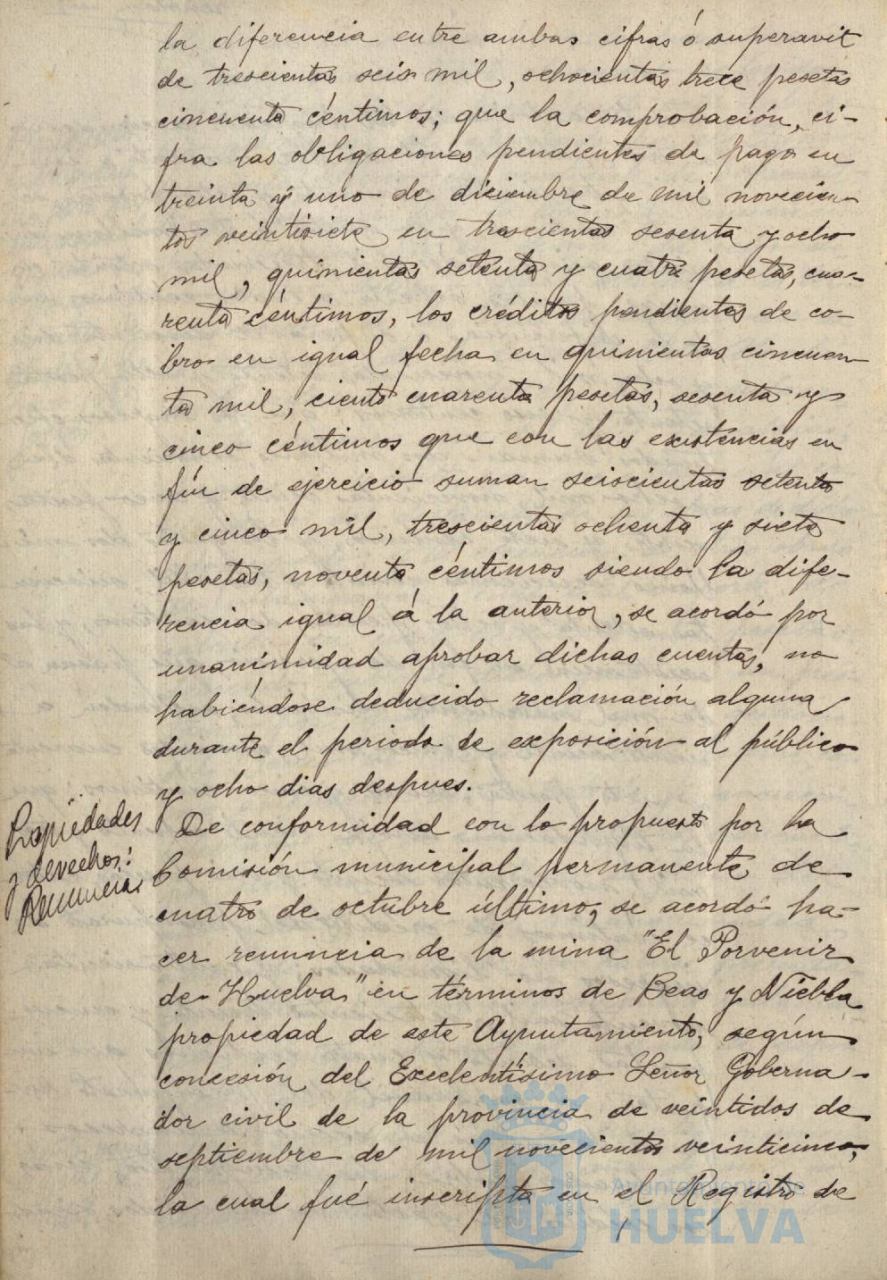 la diferencia entre ambas cifras ó superavit
de trescientas seis mil, ochocientas trece pesetas
cincuenta céntimos; que la comprobación, ci-
fra las obligaciones pendientes de pago en
treinta y uno de diciembre de mil novecien-
tos veintisiete en trescientas sesenta y ocho
mil, quinientas setenta y cuatro pesetas, cua-
renta céntimos, los créditos pendientes de co-
bro en igual fecha en quinientas cincuen-
ta mil, ciento cuarenta pesetas, sesenta y
cinco céntimos que con las existencias en
fin de ejercicio suman seiscientas setenta
y cinco mil, trescientas ochenta y siete
pesetas, noventa céntimos siendo la dife-
rencia igual á la anterior, se acordó por
unanimidad aprobar dichas cuentas, no
habiéndose deducido reclamación alguna
durante el periodo de exposición al público
y ocho dias despues.
Propiedades
y derechos:
Renuncias
De conformidad con lo propuesto por la
Comisión municipal permanente de
cuatro de octubre último, se acordó ha-
cer renuncia de la mina "El Porvenir
de Huelva" en términos de Beas y Niebla
propiedad de este Ayuntamiento, según
concesión del Excelentísimo Señor Goberna-
dor civil de la provincia de veintidos de
septiembre de mil novecientos veinticinco,
la cual fué inscripta en el Registro de
Ayuntamiento de
HUELVA